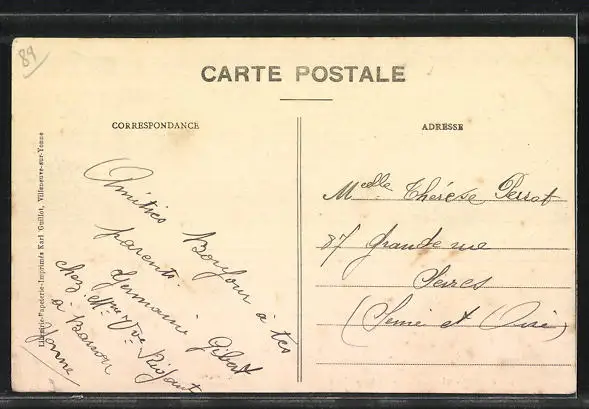 89
CARTE POSTALE
CORRESPONDANCE
ADRESSE
Librairie-Papeterie-Imprimée Karl Guillot, Villeneuve-sur-Yonne
Amitiés Bonjour à tes
parents.
Germaine Gibat
chez Mme Vve
à Bassou
Yonne
Mcelle Thérèse Perrot
87 Grande rue
Sevres
(Seine et Oise)